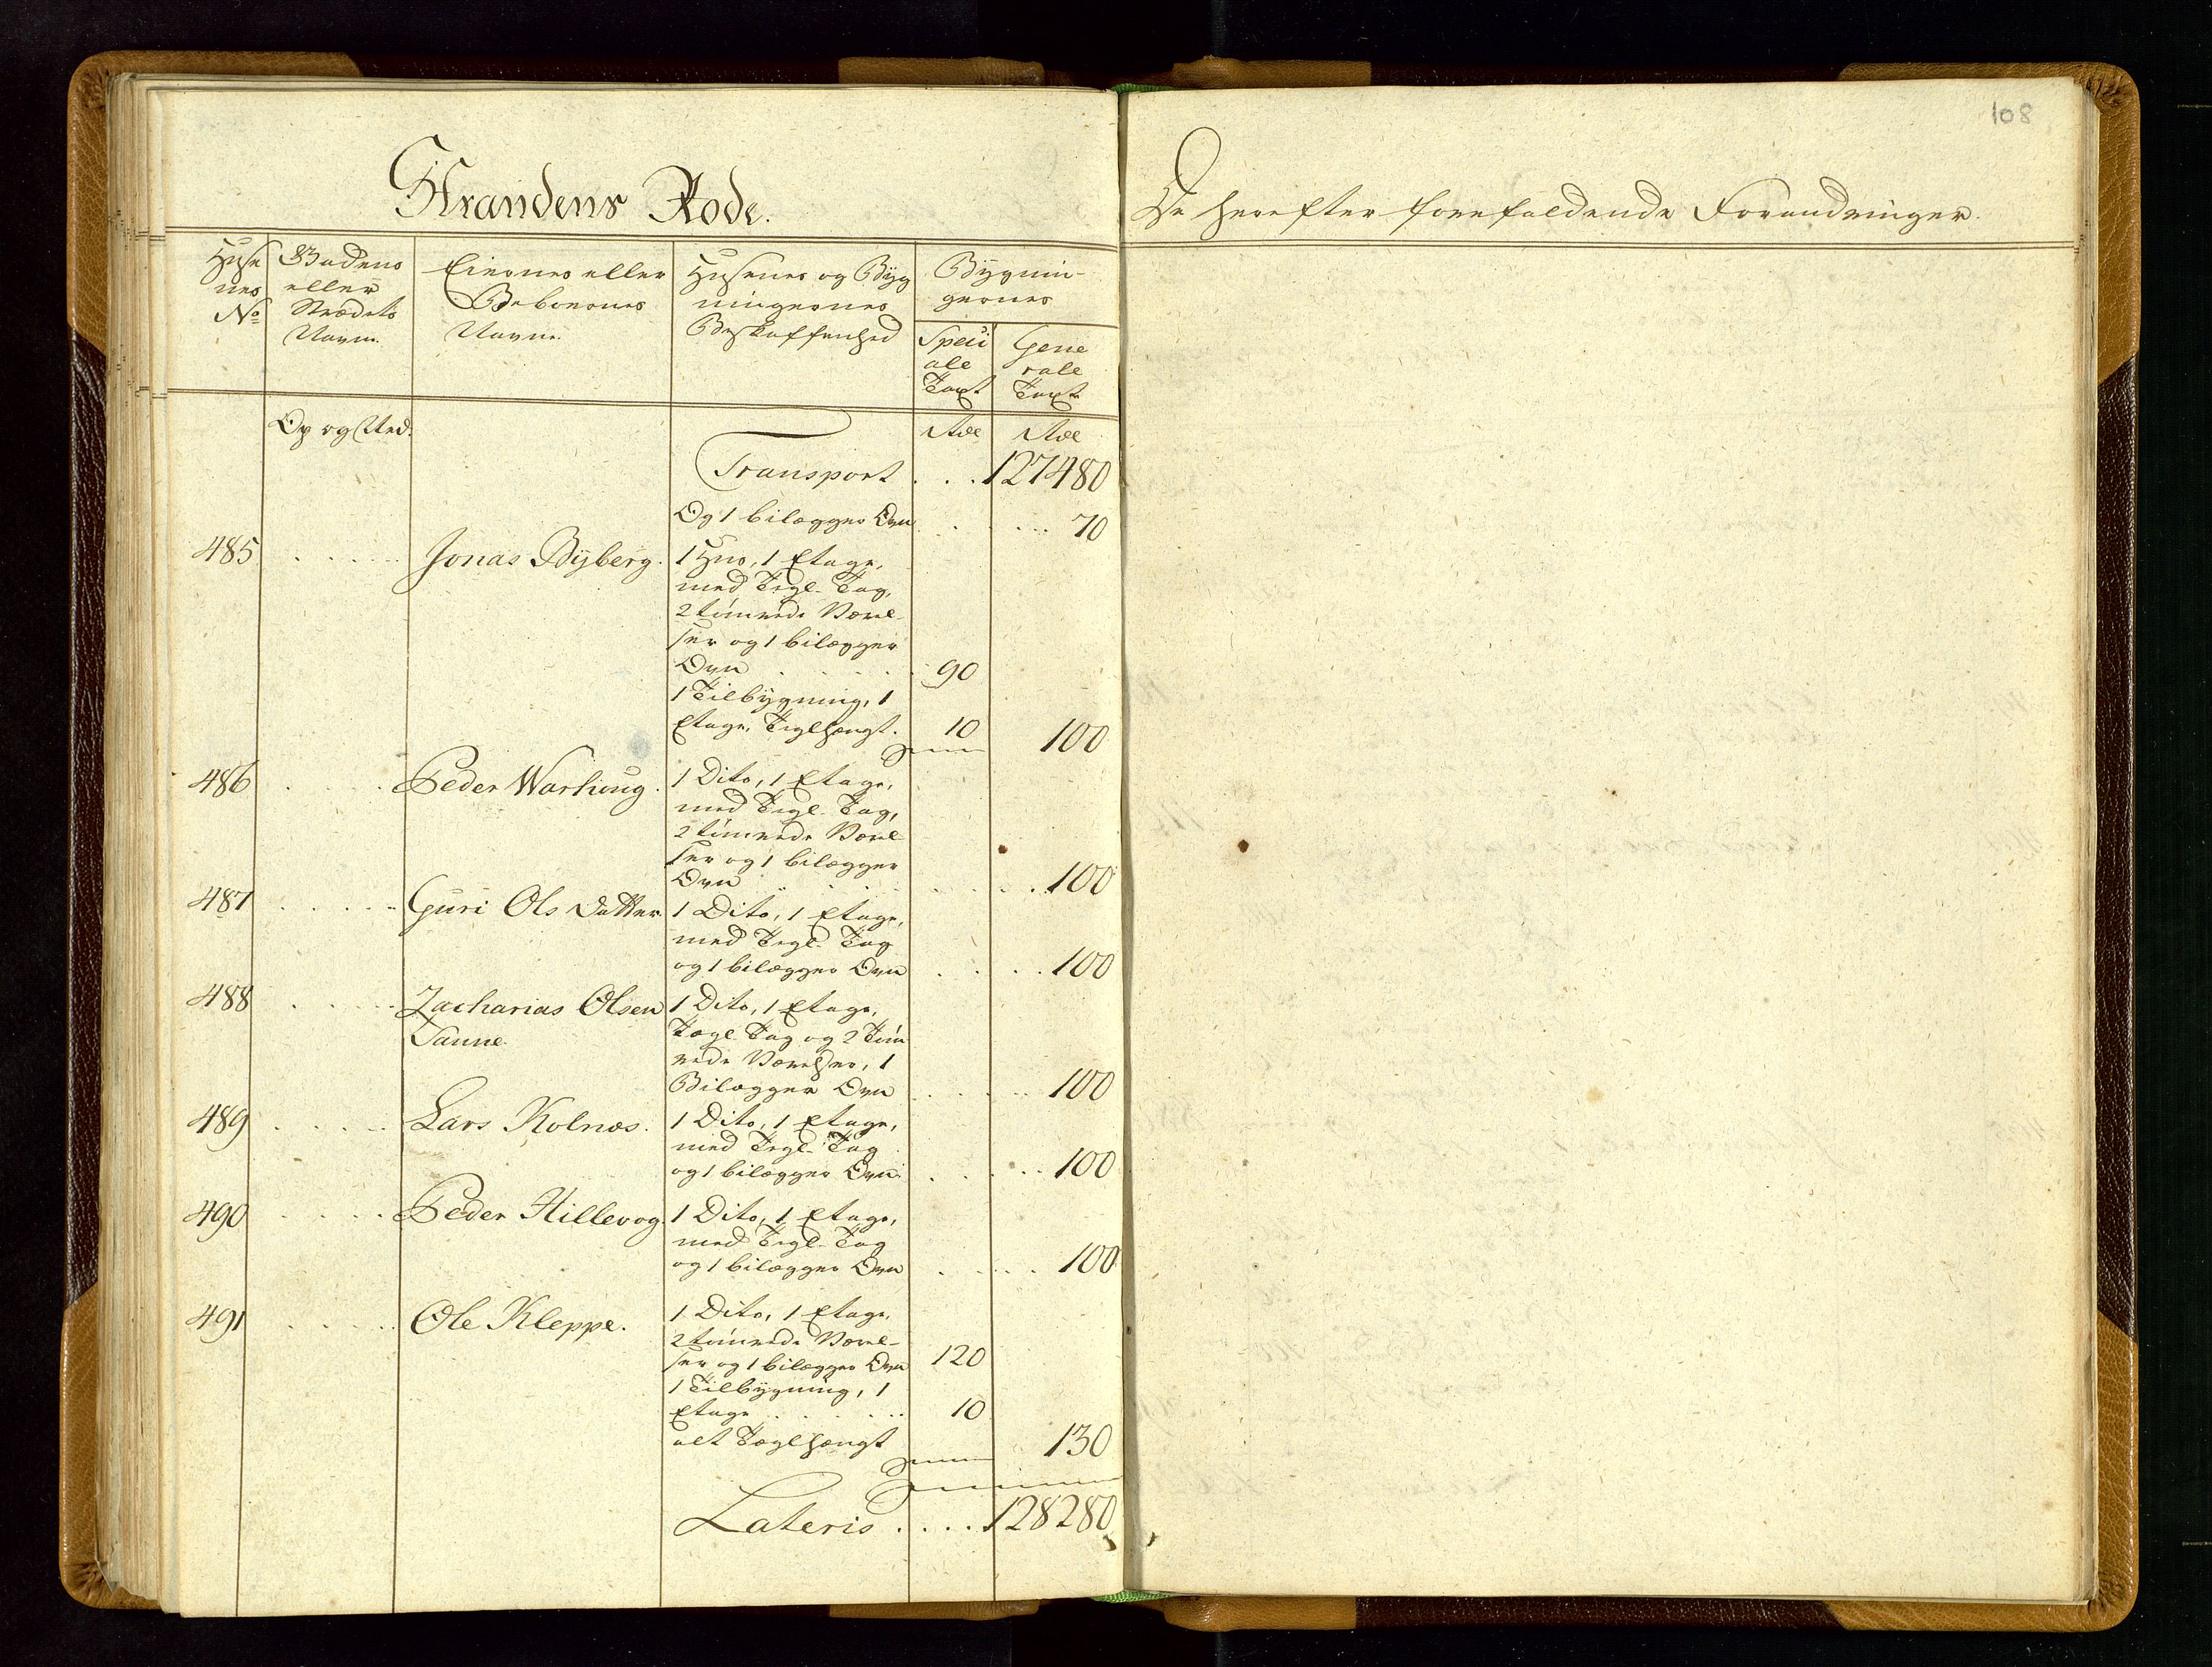 Strandens Rode.
Huse
nes
No
Gadens
eller
Strædets
Navn.
Eiernes eller
Beboernes
Navne.
Husenes og Byg
ningernes
Beskaffenhed
Bygnin-
gernes
Speci
ale
Taxt
Gene
rale
Taxt
Op og Ned.
Rdl Rdl
Transport . . . 127480
Og 1 bilægger Ovn . . . . 70
485 . . . . Jonas Byberg. 1 Huus, 1 Etage,
med Tegl-Tag,
2 timrede Værel-
ser og 1 bilægger
Ovn . . . . . 90
1 Tilbygning, 1
Etage, Teglhængt. 10 100
486 . . . . Peder Warhoug. 1 Dito, 1 Etage,
med Tegl-Tag,
2 timrede Værel-
ser og 1 bilægger
Ovn . . . . . . . 100
487 . . . . . Guri Ols Datter. 1 Dito, 1 Etage,
med Tegl-Tag
og 1 bilægger Ovn . . . . 100
488 . . . . Zacharias Olsen 1 Dito, 1 Etage,
Tanne. Tægl Tag og 2 Tim
rede Værelser, 1
Bilægger Ovn . . . . . 100
489 . . . . . Lars Kolnæs. 1 Dito, 1 Etage,
med Tegl-Tag
og 1 bilægger Ovn . . . . 100
490 . . . . Peder Hillevog. 1 Dito, 1 Etage,
med Tegl-Tag
og 1 bilægger Ovn . . . . 100
491 . . . . Ole Kleppe. 1 Dito, 1 Etage,
2 timrede Værel-
ser og 1 bilægger Ovn 120
1 Tilbygning, 1
Etage . . . . . 10
alt Tæglhængt 130
Lateris . . . . 128280
108
De herefter forefaldende Forandringer.